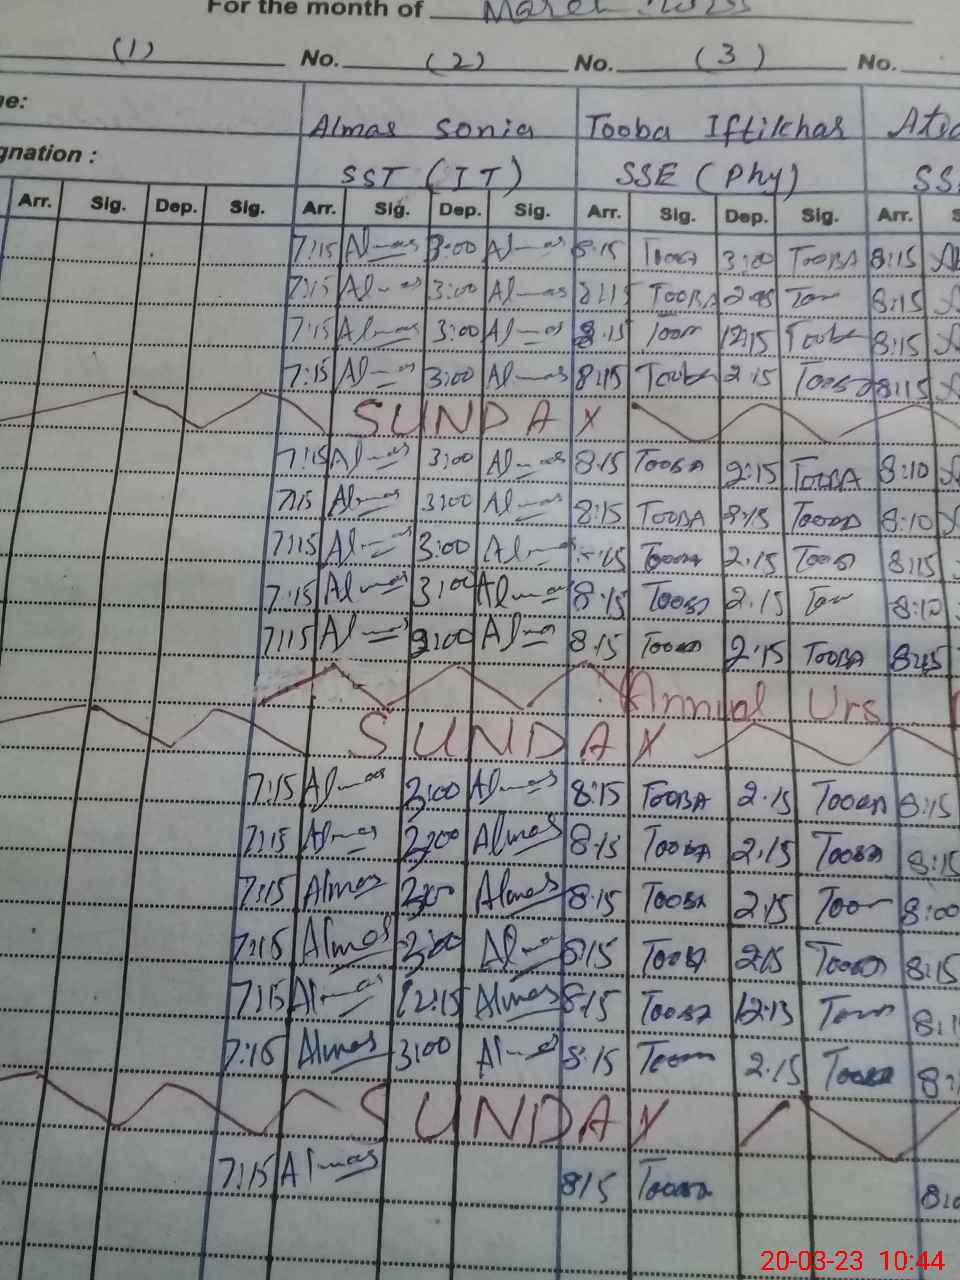 For the month of March
(1) No. (2) No. (3) No.
Almas Sonia Tooba Iftikhar
gnation : SST (IT) SSE (Phy)
Arr. Sig. Dep. Sig. Arr. Sig. Dep. Sig. Arr. Sig. Dep. Sig. Arr.
7:15 Almas 3:00 Almas 8:15 Tooba 3:00 TOOBA 8:15
7:15 Almas 3:00 Almas 8:15 TOOBA 8:15
7:15 Almas 3:00 Almas 8:15 12:15 Tooba 8:15
7:15 Almas 3:00 Almas 8:15 Tooba 2:15 Tooba 8:15
SUNDAY
7:15 Almas 3:00 Almas 8:15 TOOBA 2:15 TOOBA 8:10
7:15 Almas 3:00 Almas 8:15 TOOBA TOOBA 8:10
7:15 Almas 3:00 Almas Tooba 2:15 Tooba 8:15
7:15 Almas 3:00 Almas 8:15 Tooba 2:15 8:10
7:15 Almas 3:00 Almas 8:15 Tooba 2:15 TOOBA
Annual Urs
SUNDAY
7:15 Almas 3:00 Almas 8:15 TOOBA 2:15 TOOBA 8:15
7:15 Almas 3:00 Almas 8:15 Tooba 2:15 Tooba 8:15
7:15 Almas Almas 8:15 Tooba 2:15 8:00
7:15 Almas 3:00 Almas 8:15 Tooba 2:15 Tooba 8:15
7:15 Almas 12:15 Almas 8:15 Tooba
7:15 Almas 3:00 Almas 8:15 2:15 Tooba
SUNDAY
7:15 Almas 8:15 Tooba
20-03-23 10:44